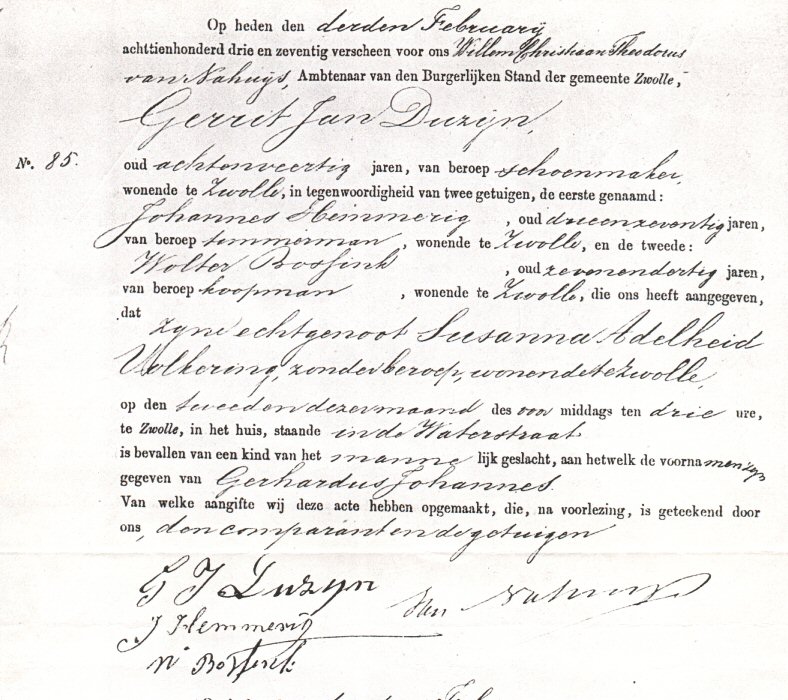 Op heden den derden February
achttienhonderd drie en zeventig verscheen voor ons Willem Christiaan Theodorus
van Nahuys, Ambtenaar van den Burgerlijken Stand der gemeente Zwolle,
Gerrit Jan Duzyn,
No. 85.
oud achtenveertig jaren, van beroep schoenmaker,
wonende te Zwolle, in tegenwoordigheid van twee getuigen, de eerste genaamd:
Johannes Hemmerig, oud drieenzeventig jaren,
van beroep timmerman, wonende te Zwolle, en de tweede:
Wolter Bossink, oud zevenendertig jaren,
van beroep koopman, wonende te Zwolle, die ons heeft aangegeven,
dat
zyne echtgenoot Susanna Adelheid
Volkering, zonder beroep, wonende te Zwolle,
op den tweeden dezer maand des voor middags ten drie ure,
te Zwolle, in het huis, staande in de Waterstraat
is bevallen van een kind van het manne lijk geslacht, aan hetwelk de voornamen zyn
gegeven van Gerhardus Johannes.
Van welke aangifte wij deze acte hebben opgemaakt, die, na voorlezing, is geteekend door
ons, den comparant en de getuigen
G J Duzyn
van Nahuys
J Hemmerig
W Bossink